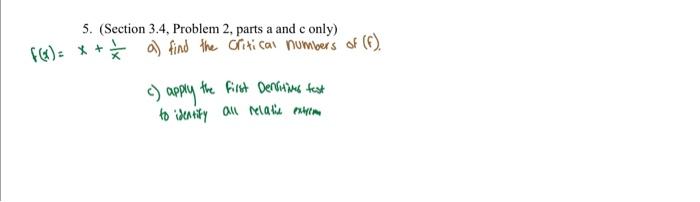 5. (Section 3.4, Problem 2, parts a and c only)
f(x) = x + 1/x a) find the critical numbers of (f).
c) apply the first Derivitives test
to identify all relative extrema